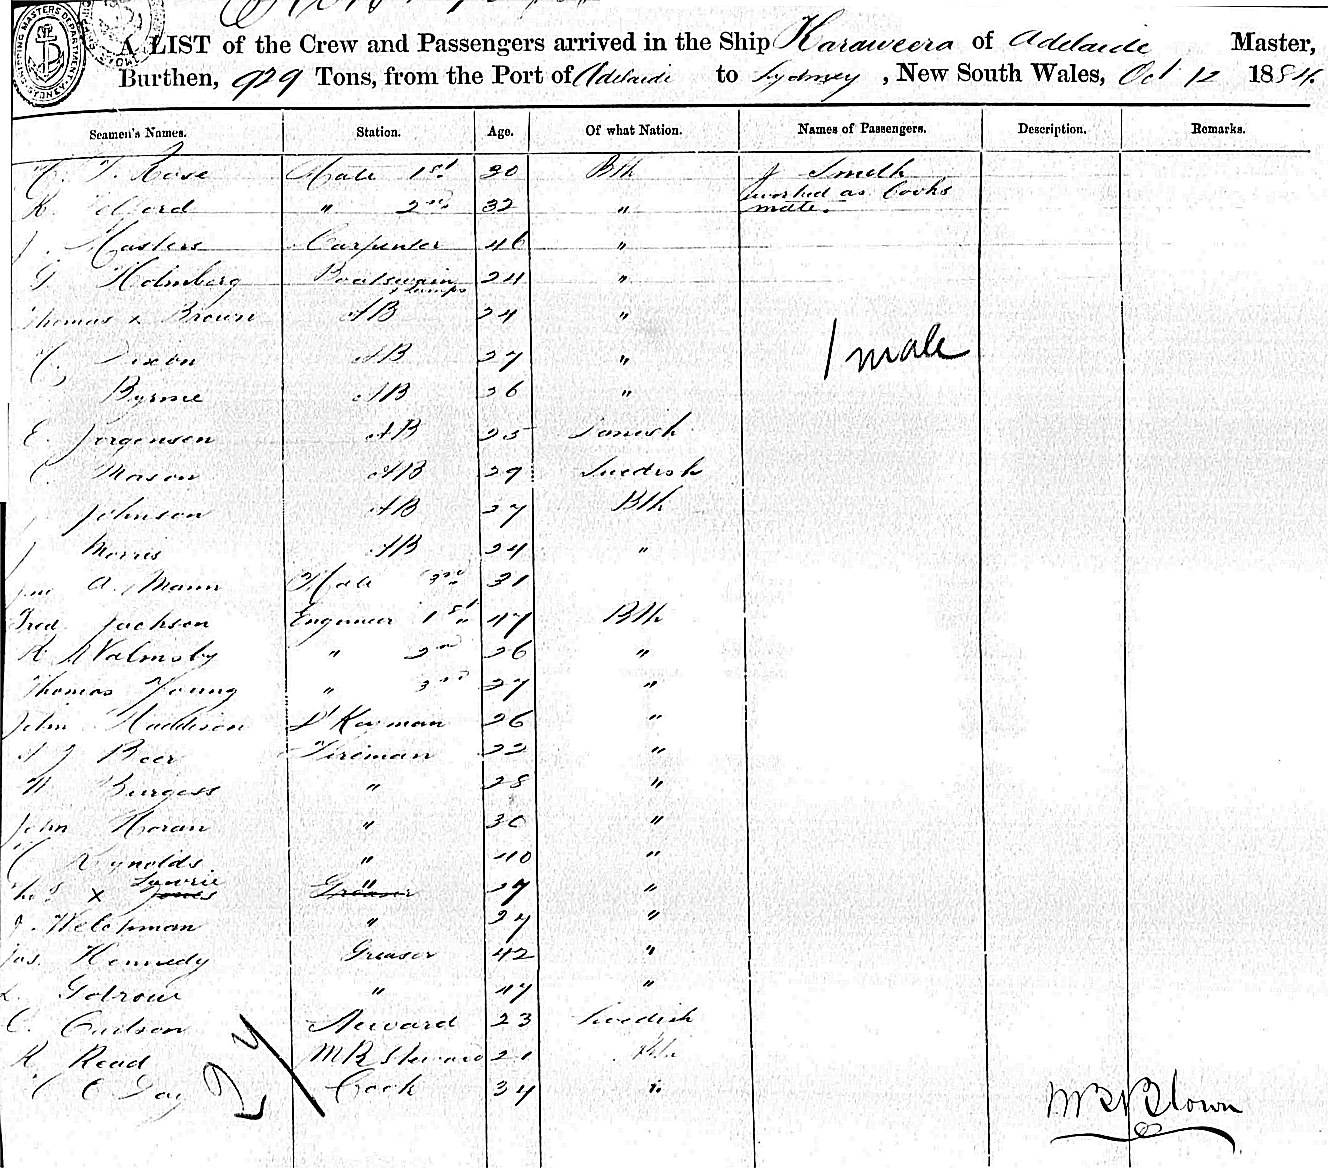 A LIST of the Crew and Passengers arrived in the Ship Karaweera of Adelaide Master,
Burthen, 929 Tons, from the Port of Adelaide to Sydney, New South Wales, Oct 12 1884
Seamen's Names. Station. Age. Of what Nation. Names of Passengers. Description. Remarks.
T. Rose Mate 1st 30 Bth J Smith
K. " 2nd 32 " worked as Cooks
mate.
J. Masters Carpenter 46 "
G Holmberg Boatswain 24 "
& Lamps
Thomas x Brown AB 24 "
Dixon AB 27 "
1 male
Byrne AB 26 "
E. Jorgensen AB 25 Danish
C. Mason AB 29 Swedish
J. Johnson AB 27 Bth
J Morris AB 24 "
A. Mann Mate 3rd 31
Fred Jackson Engineer 1st 47 Bth
A Walmsby " 2nd 26 "
Thomas Young " 3rd 27 "
John Haddison Dkeyman 26 "
J Beer Fireman 22 "
W Burgess " 28 "
John Horan " 30 "
C Reynolds " 40 "
Lawrie "
Thos x Jones Greaser 27 "
J. Welchman " 24 "
Jas. Kennedy Greaser 42 "
L. " 47 "
C. Carlson Steward 23 Swedish
R. Read M R Steward 21 Bth
C Day Cook 34 "
27